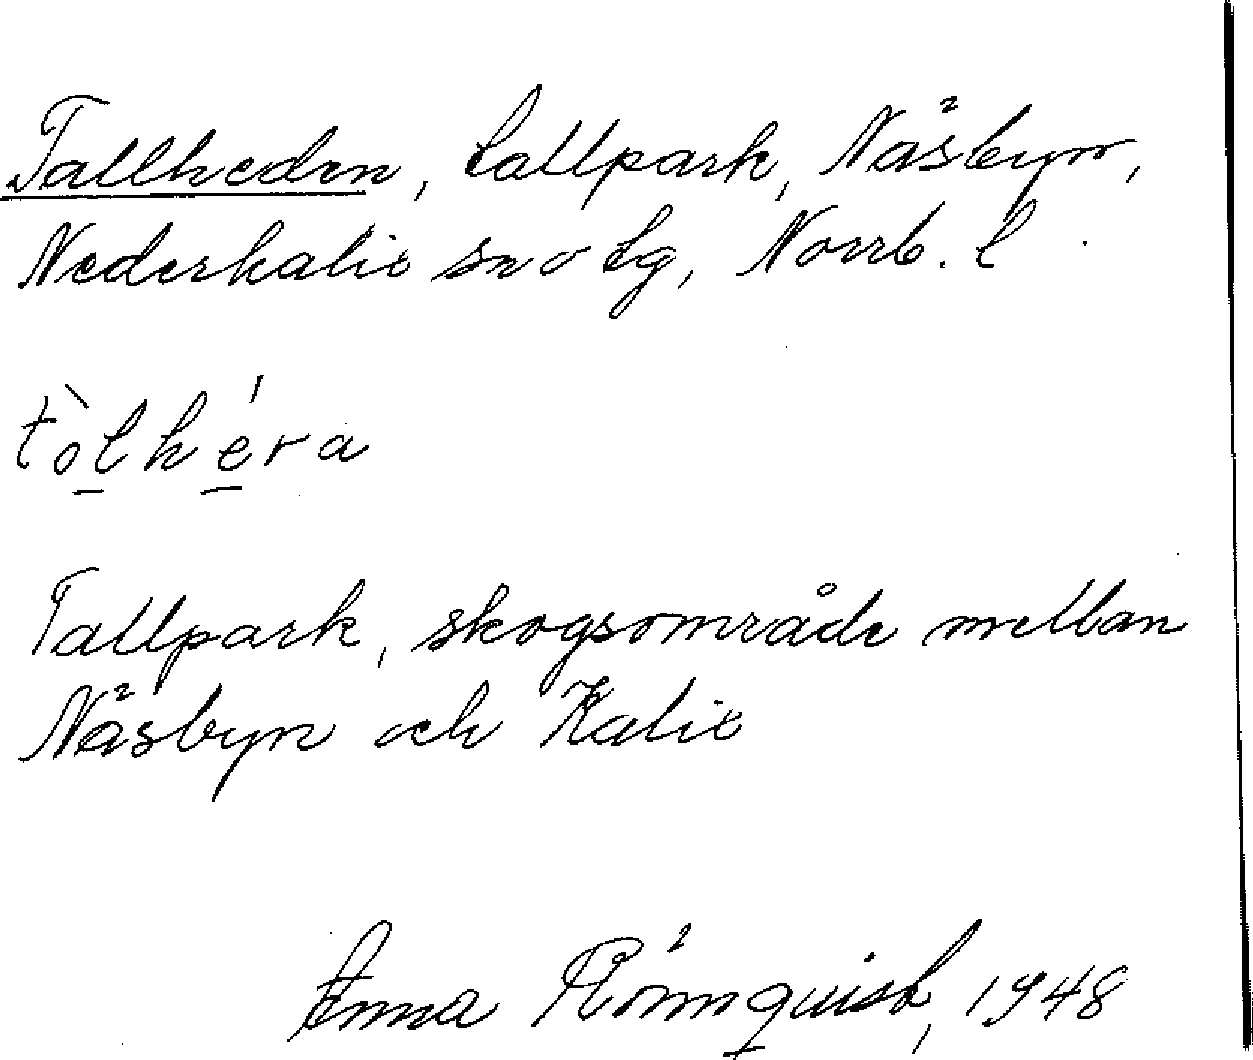 Tallheden, tallpark, Näsbyn,
Nederkalix sn o tg, Norrb. l.
tò̲lhé̲ra
Tallpark, skogsområde mellan
Näsbyn och Kalix
Anna Rönnquist, 1948